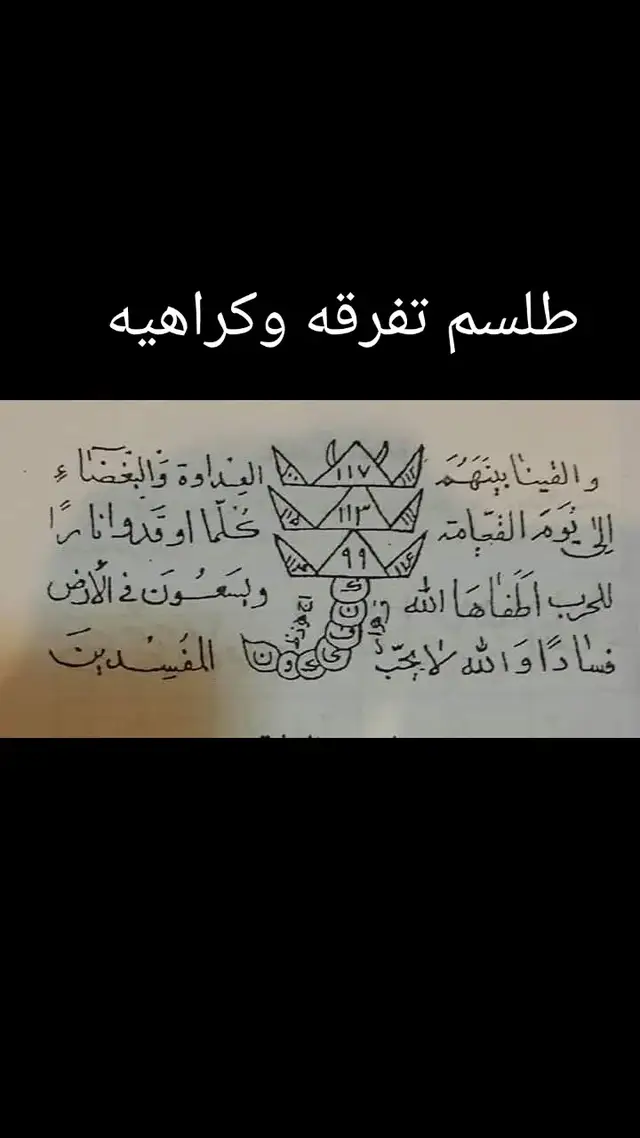 طلسم تفرقه وكراهيه
والقينا بينَهُمَ العداوة وَالبَغَضَاءِ
١١٧
إلى يَوَمَ القيامة كُلّما اوقَدوا نارًا
١١٣
للحرب اطَفاهَا الله ويسَعَونَ فى الأرض
٩٩
فسادًا وَالله لا يحبّ المفسِدينَ